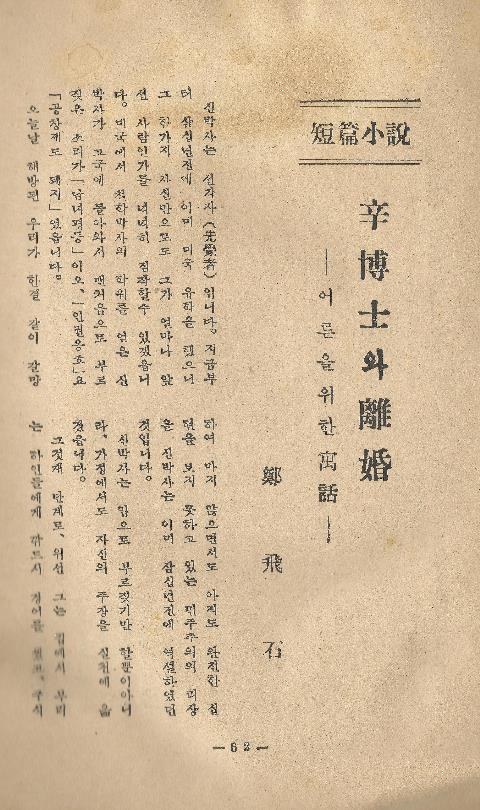 短篇小說
辛博士와 離婚
―어른을 위한 寓話―
鄭飛石
신박사는 선각자(先覺者)입니다. 지금부
터 삼십년전에 이미 미국 유학을 했으니
그 한가지 사실만으로도 그가 얼마나 앞
선 사람인가를 넉넉히 짐작할수 있겠읍니
다. 미국에서 철학박사의 학위를 얻은 신
박사가 고국에 돌아와서 맨처음으로 부르
짖은 소리가 「남녀평등」이오, 「인권옹호」요
「공창제도 폐지」였읍니다.
오늘날 해방된 우리가 한결 같이 갈망
하여 마지 않으면서도 아직도 완전한 실
현을 보지 못하고 있는 민주주의의 리상
을 신박사는 이미 삼십년전에 역설하였던
것입니다.
신박사는 입으로 부르짖기만 할뿐이아니
라, 가정에서도 자신의 주장을 실천에 옮
겼읍니다.
그것재 단계로, 위선 그는 집에서 부리
는 하인들에게 깍드시 경어를 쓰고, 주식
—62—